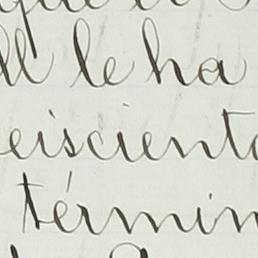 que
ll le ha
eiscienta
términ